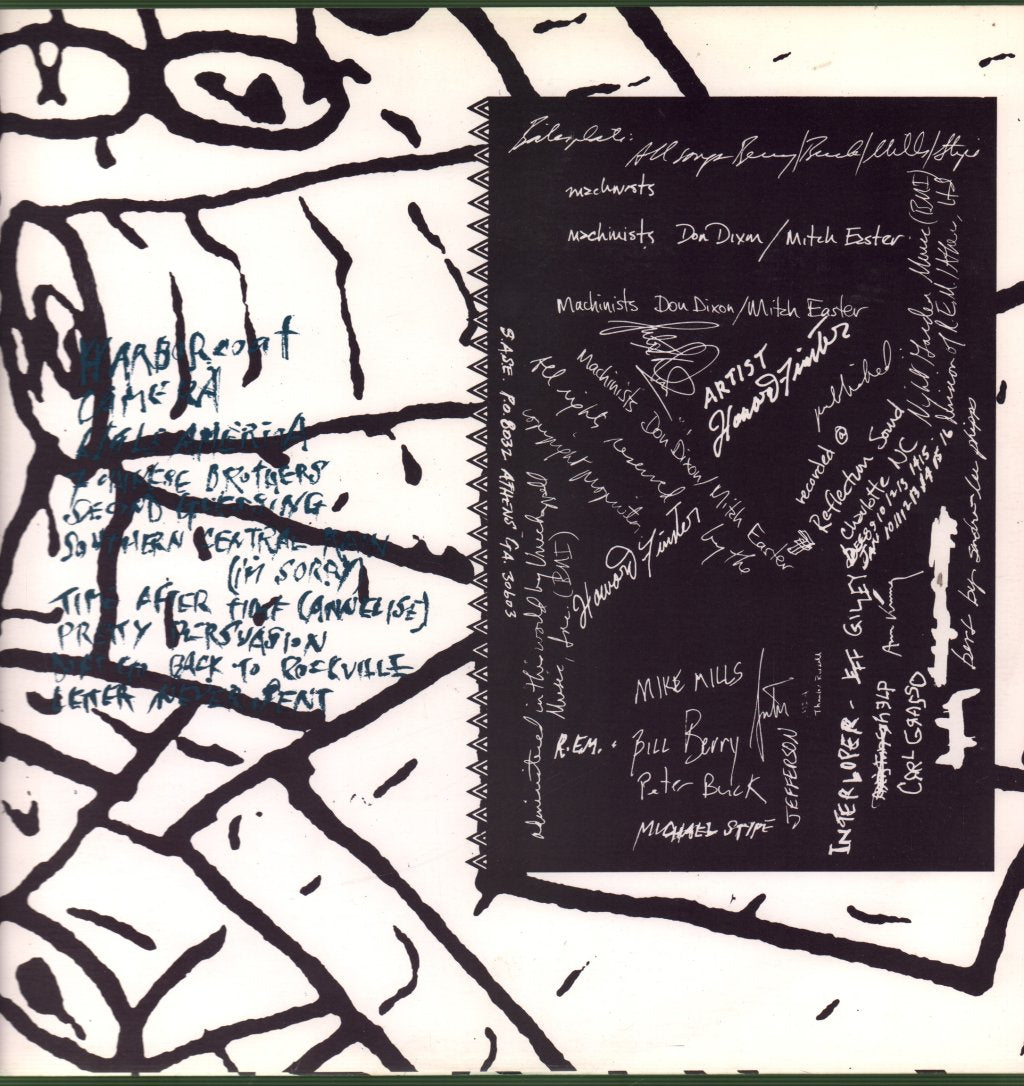 HARBORcoat
CAMERA
LittLe AMERICA
7 CHINESE BROTHERS
SECOND GUESSING
SOUTHERN CENTRAL RAIN
(I'M SORRY)
TIME AFTER TIME (ANNELISE)
PRETTY PERSUASION
BACK TO ROCKVILLE
LETTER NEVER SENT
All songs Berry/Buck/Mills/Stipe
machinists
machinists Don Dixon/Mitch Easter
Machinists Don Dixon/Mitch Easter
ARTIST
Howard Finster
Machinists Don Dixon/Mitch Easter
All rights reserved by the
copyright proprietor
Howard Finster
S.A.S.E. P.O. Box 8032 ATHENS GA. 30603
administered in this world by Unichappell
Music, Inc. (BMI)
published
Night Garden Music (BMI)
a division of R.E.M./Athens, Ltd
recorded @
Reflection Sound
Charlotte NC
R.E.M. :
MIKE MILLS
BILL Berry
Peter Buck
MICHAEL STIPE
JEFFERSON
INTERLOPER - JEFF GILEY
HELP
CARL GRASSO
best by